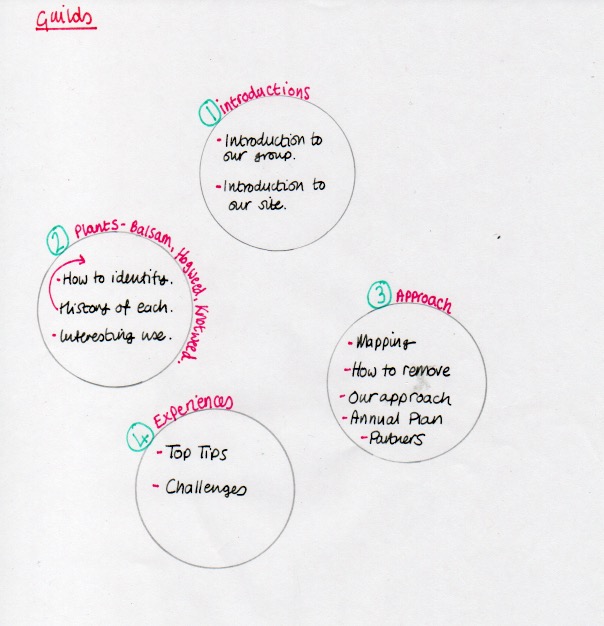 Guilds
1 introductions
- Introduction to
our group.
- Introduction to
our site.
2 Plants - Balsam, Hogweed, Knotweed.
- How to identify.
History of each.
- Interesting use.
3 Approach
- Mapping
- How to remove
- Our approach
- Annual Plan
- Partners
4 Experiences
- Top Tips
- Challenges